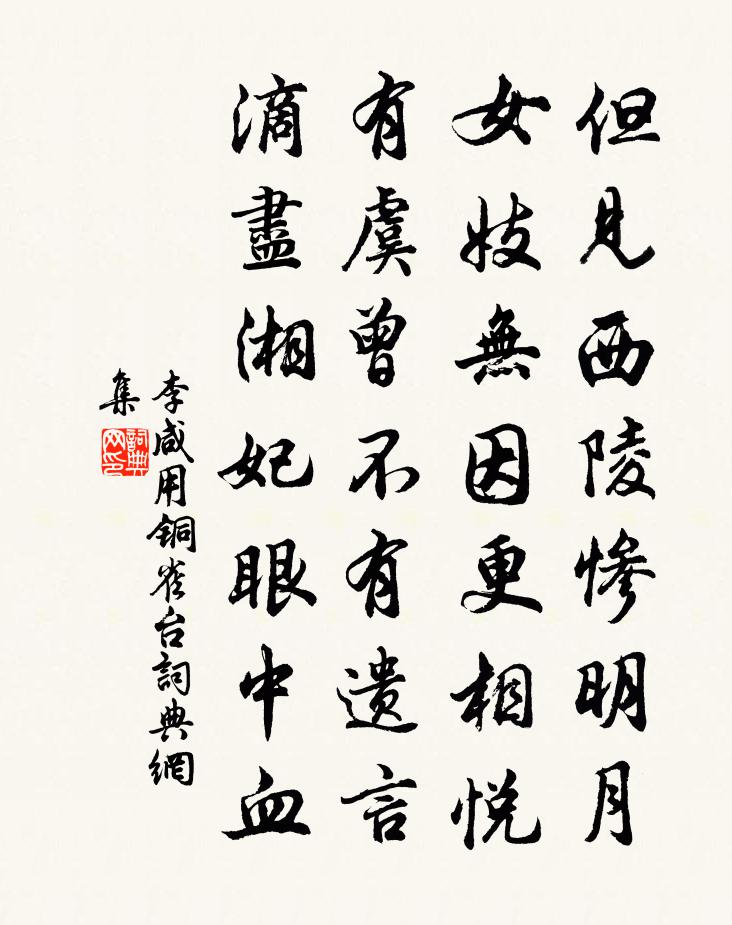 但見西陵慘明月
女妓無因更相悅
有虞曾不有遺言
滴盡湘妃眼中血
李咸用銅雀台詞典網
集
詞典
网印